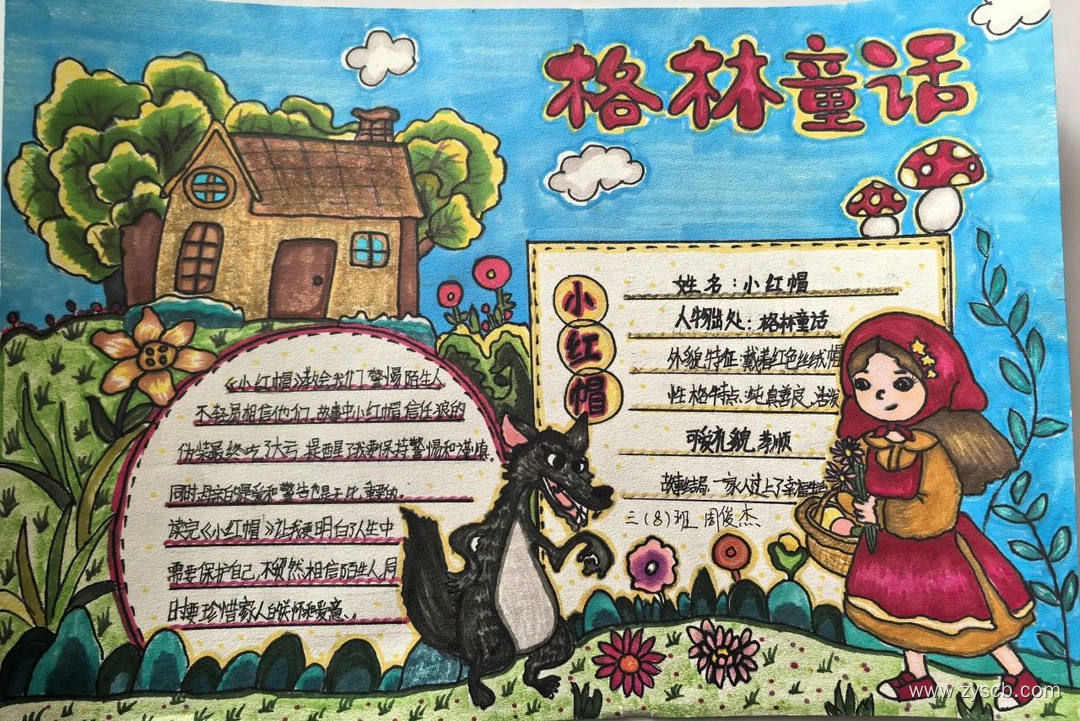 格林童话
小红帽
姓名:小红帽
人物出处:格林童话
外貌特征:戴着红色丝绒帽
性格特点:纯真善良、活泼
可爱礼貌、孝顺
故事结局:一家人过上了幸福生
三(8)班 周俊杰
《小红帽》教会我们了警惕陌生人
不轻易相信他们,故事中小红帽信任狼的
伪装最终吃了大亏,提醒了我要保持警惕和谨慎
同时母亲的爱和警告也是无比重要的。
读完《小红帽》让我更明白了人生中
需要保护自己,不贸然相信陌生人,同
时要珍惜家人的关怀和爱意。
www.zyscb.com